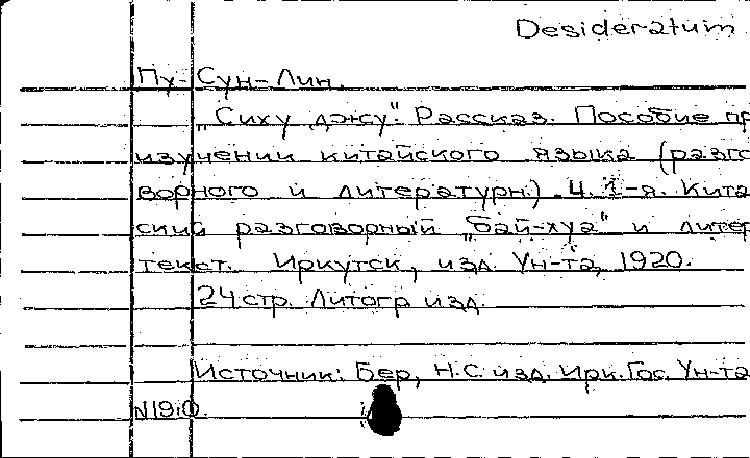 Desideratum
Пу-Сун-Лин.
„Сиху джу". Рассказ. Пособие пр
изучении китайского языка (разго
ворного и литературн.) Ч. 1-я. Кита
ский разговорный „бай-хуа" и литер
текст. Иркутск, изд. Ун-та, 1920.
24 стр. Литогр изд.
Источник: Бер, Н.С. изд. Ирк. Гос. Ун-та